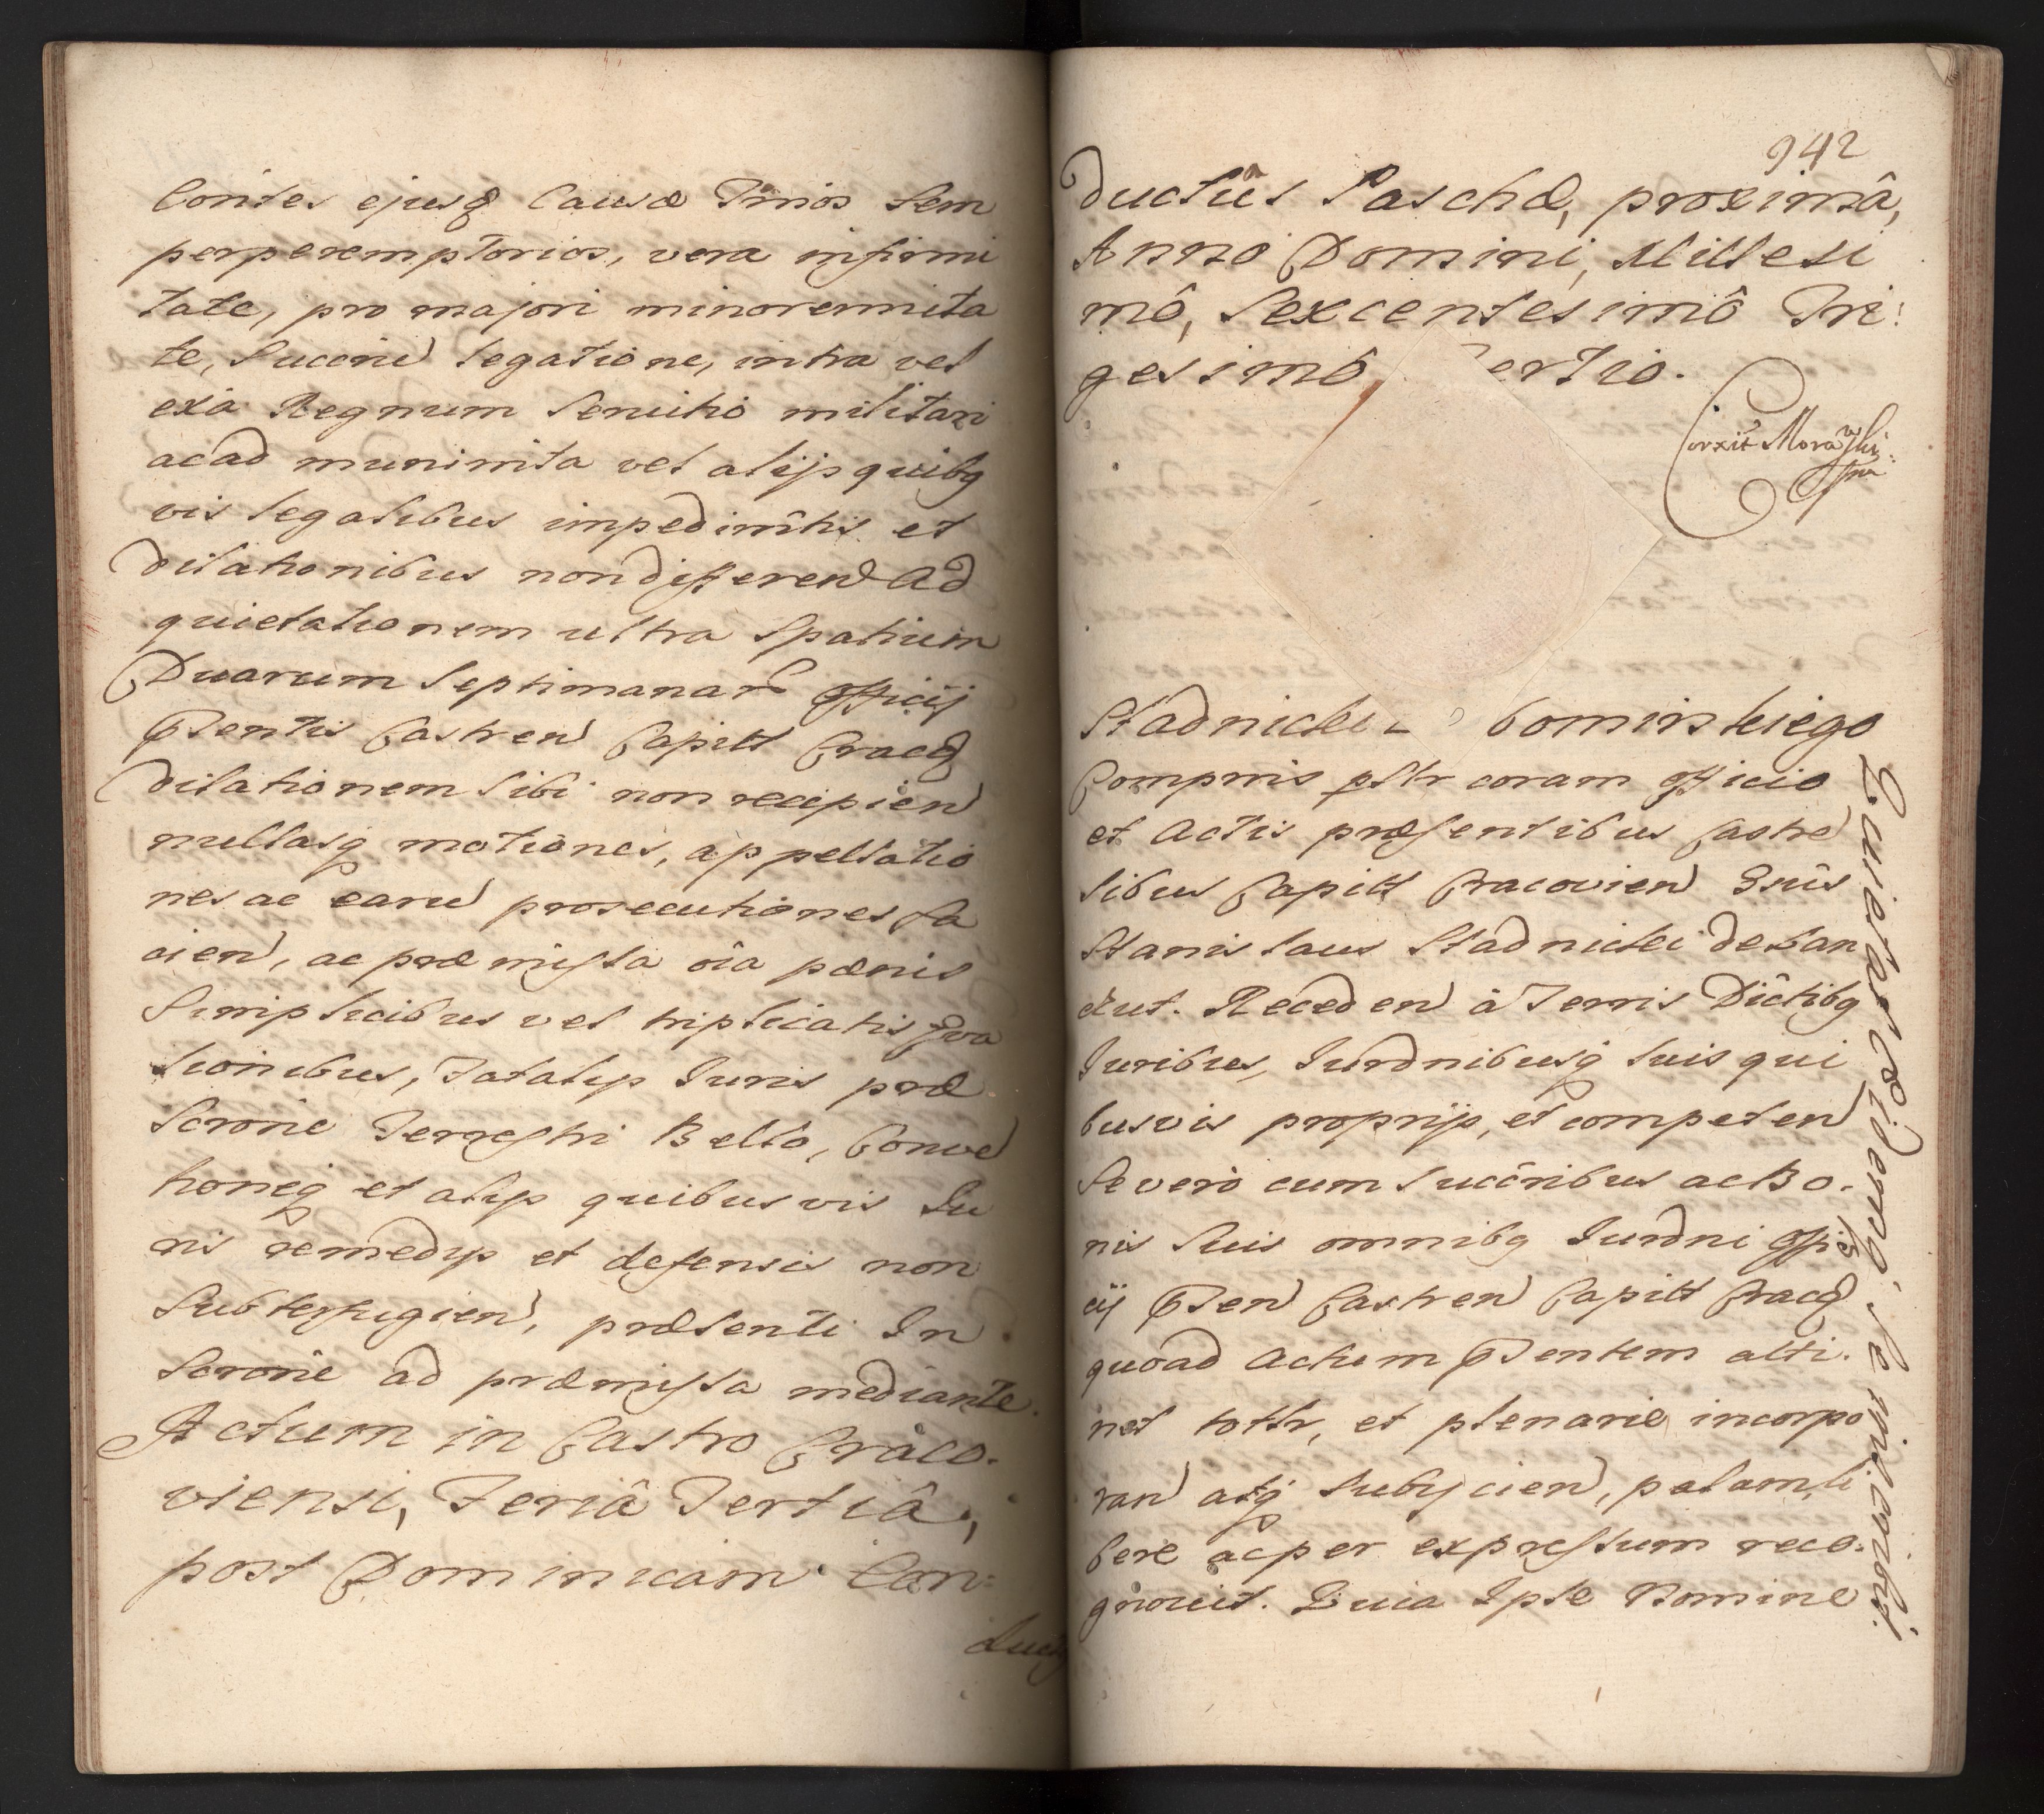 Contes ejusq Causæ Tmios Sem
perperemptorios, vera infirmi
tate, pro majori minorennita
te, Succne legatione, intra vel
exa Regnum Servitio militari
acad munimta vel alijs quibq
vis legalibus impedimtis et
dilationibus non differen Ad
quietationem ultra Spatium
Duarum Septimanar Officij
Pntis Castren Capitt Cracq
dilationem Sibi non recipien
nullasq motiones, appellatio
nes ac earu prosecutiones fa
cien, ac præmissa oia pænis
Simplicibus vel triplicatis Eva
sionibus, Fatalijs Juris præ
Scrone Terrestri Bello, Conve
tioneq et alijs quibusvis Ju
ris remedijs et defensis non
Subterfugien, præsenti In
Scrone ad præmissa mediante.
Actum in Castro Craco-
viensi, Feriâ Tertiâ,
post Dominicam Con-
duct
942
ductûs Paschæ, proximâ,
Anno Domini, Millesi
mô, Sexcentesimô Tri:
gesimô ertio.
Corxit Morawski
mp
Stadnicki bominskiego
Compnis pstr coram officio
et Actis præsentibus Castre
sibus Capitt Cracovien Gnûs
Stanislaus Stadnicki de Zan
Receden â Terris Dictibq
Juribus, Jurdnibusq suis qui
busvis proprijs, et competen
Se vero cum Succribus ac Bo-
nis Suis omnibq Jurdni Offi
cij Pnen Castren Capitt Cracq
quoad Actum Pntem atti-
net tottr, et plenarie incorpo
ran atq Subijcien, palam, li
bere acper expressum reco-
gnovit. Quia Ipse Nomine
Quietat &